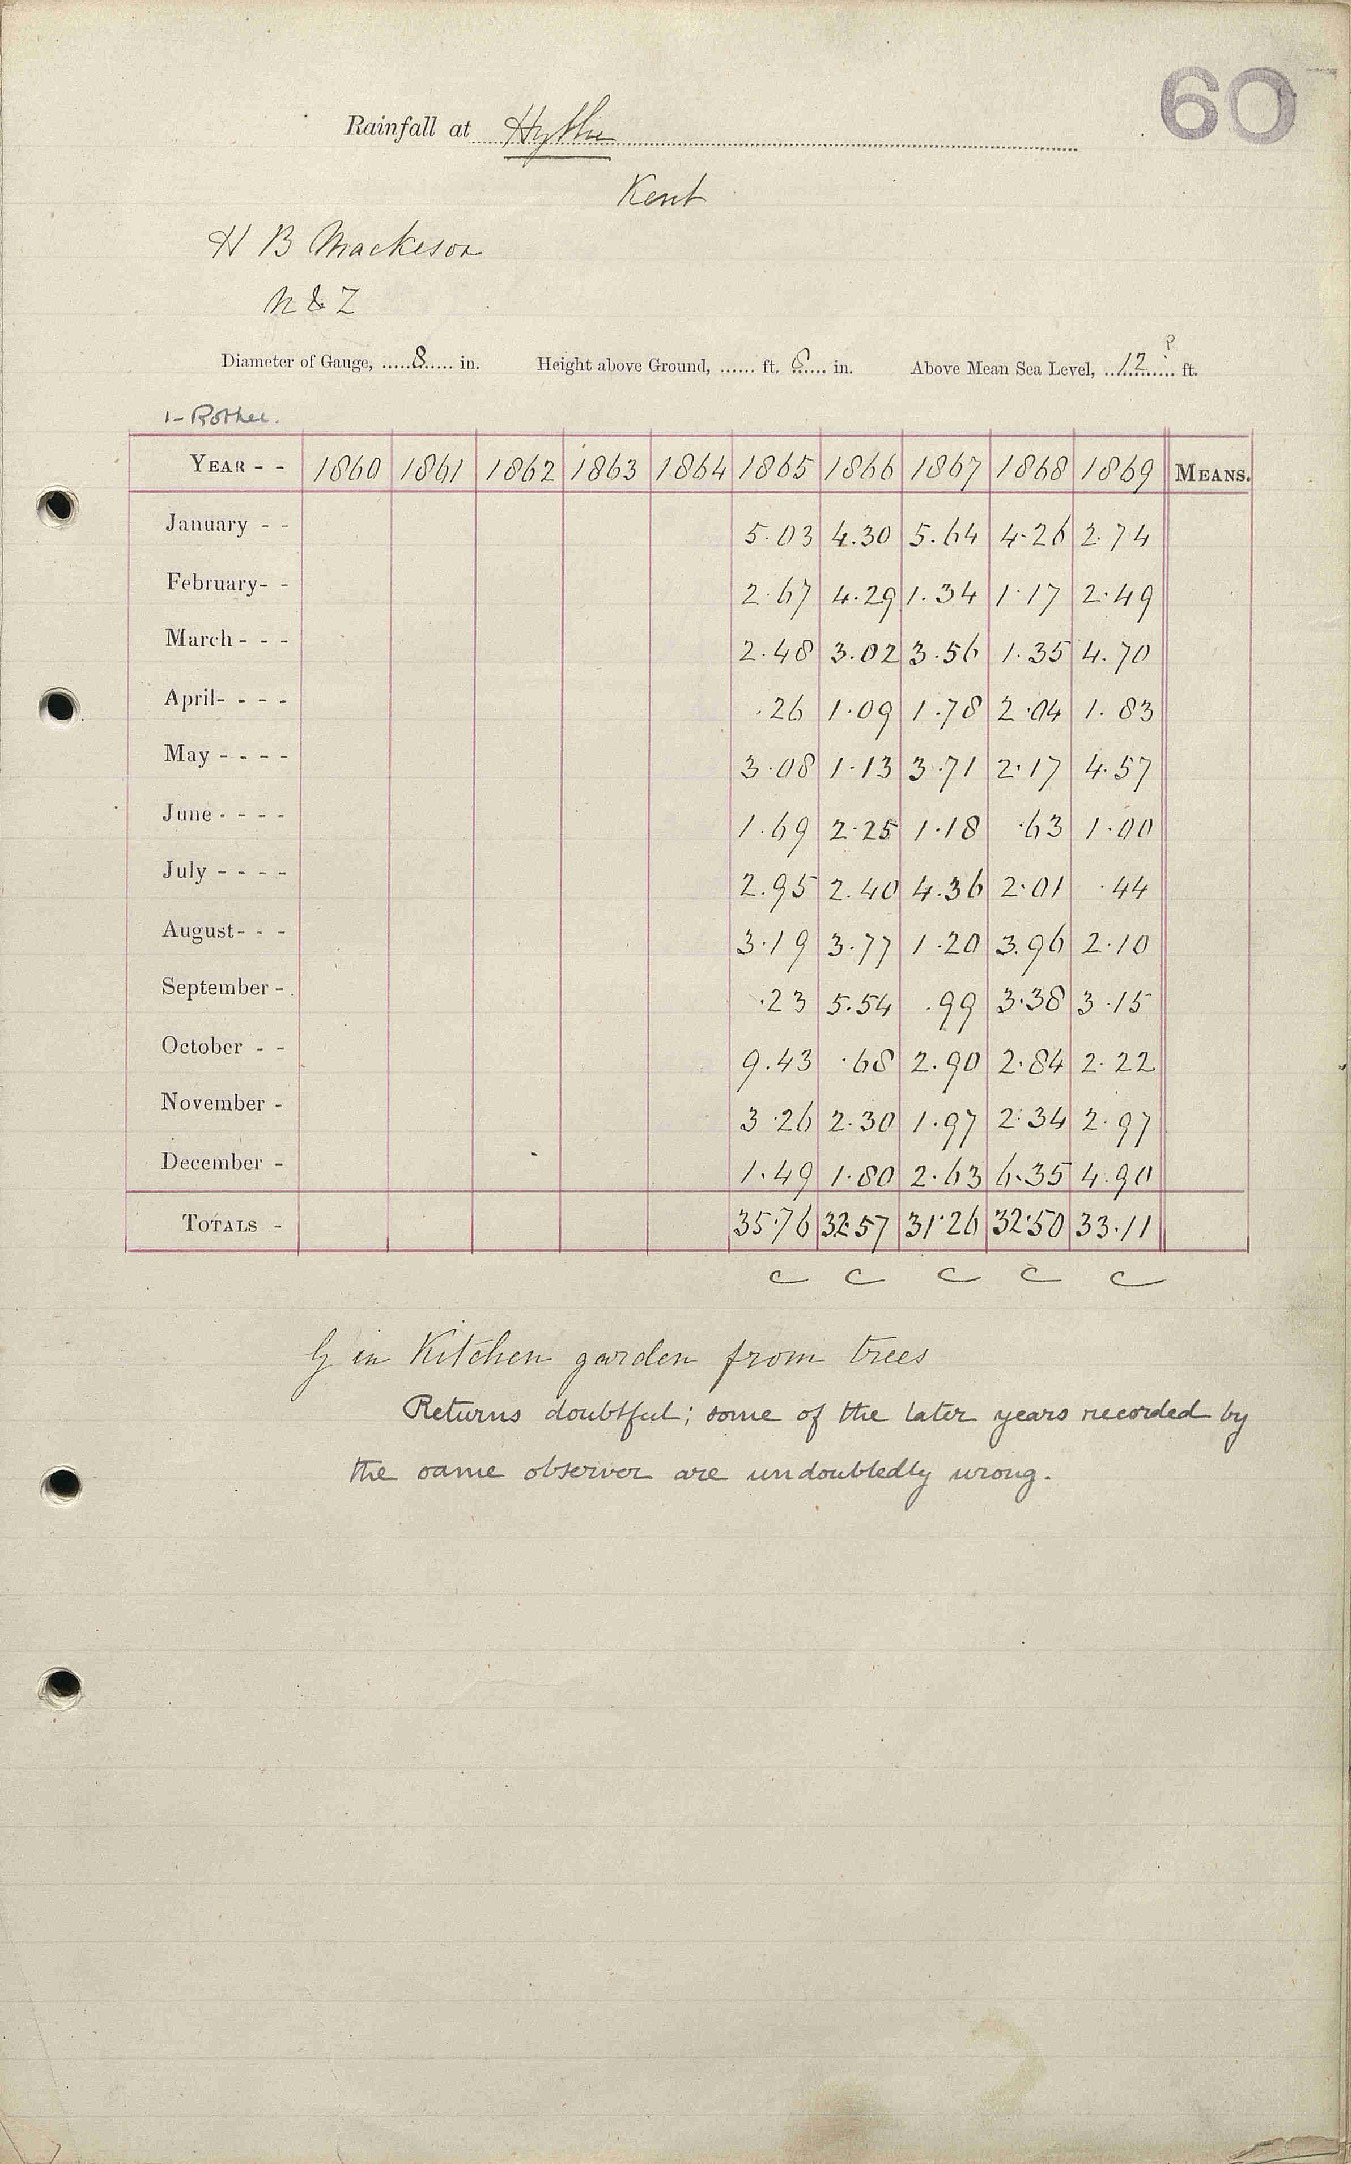 60
Rainfall at Hythe
Kent
H B Mackeson
N & Z
Diameter of Gauge, 8 in. Height above Ground, ...... ft. 8 in. Above Mean Sea Level, 12 ? ft.
1 - Rother.
YEAR - - 1860 1861 1862 1863 1864 1865 1866 1867 1868 1869 MEANS.
January - - 5.03 4.30 5.64 4.26 2.74
February - - 2.67 4.29 1.34 1.17 2.49
March - - - 2.48 3.02 3.56 1.35 4.70
April - - - - .26 1.09 1.78 2.04 1.83
May - - - - 3.08 1.13 3.71 2.17 4.57
June - - - - 1.69 2.25 1.18 .63 1.00
July - - - - 2.95 2.40 4.36 2.01 .44
August - - - 3.19 3.77 1.20 3.96 2.10
September - .23 5.54 .99 3.38 3.15
October - - 9.43 .68 2.90 2.84 2.22
November - 3.26 2.30 1.97 2.34 2.97
December - 1.49 1.80 2.63 6.35 4.90
TOTALS - 35.76 32.57 31.26 32.50 33.11
C C C C C
G in Kitchen garden from trees
Returns doubtful; some of the later years recorded by
the same observer are undoubtedly wrong.